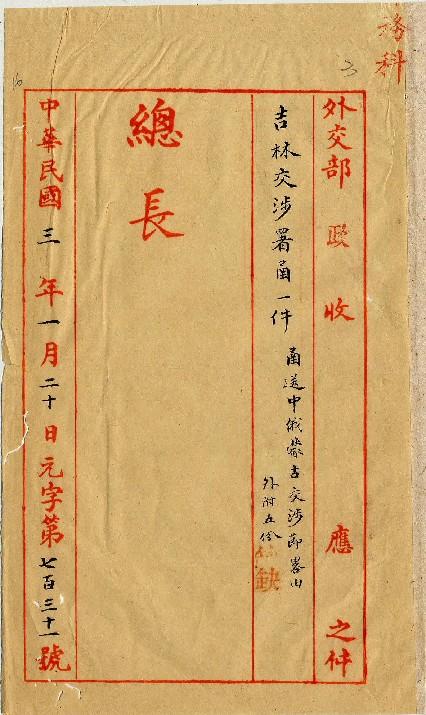 務科
外交部 歐收 應 之件
吉林交涉署函一件 函送中俄蒙古交涉節畧由
外附五份 缺
總長
中華民國三年一月二十日元字第七百三十一號